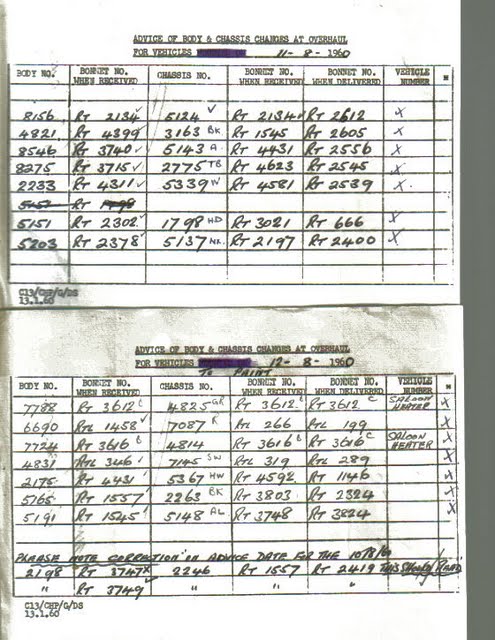 ADVICE OF BODY & CHASSIS CHANGES AT OVERHAUL
FOR VEHICLES 11-8-1960
BODY NO. BONNET NO. WHEN RECEIVED CHASSIS NO. BONNET NO. WHEN RECEIVED BONNET NO. WHEN DELIVERED VEHICLE NUMBER M
8156 RT 2134 ✓ 5124 ✓ RT 2134 RT 2612 X
4821 RT 4399 ✓ 3163 BK RT 1545 RT 2605 X
8546 RT 3740 ✓ 5143 A RT 4431 RT 2556 X
8275 RT 3715 ✓ 2775 TB RT 4623 RT 2545 X
2233 RT 4311 ✓ 5339 W RT 4581 RT 2539 X
RT
5151 RT 2302 ✓ 1798 HD RT 3021 RT 666 X
5203 RT 2378 ✓ 5137 RT 2197 RT 2400 X
C13/CHP/G/DS
13.1.60
ADVICE OF BODY & CHASSIS CHANGES AT OVERHAUL
FOR VEHICLES 12-8-1960
TO PAINT
BODY NO. BONNET NO. WHEN RECEIVED CHASSIS NO. BONNET NO. WHEN RECEIVED BONNET NO. WHEN DELIVERED VEHICLE NUMBER M
7788 RT 3612 C 4825 GR RT 3612 C RT 3612 C SALOON HEATER X
6690 RTL 1458 ✓ 7087 K RTL 266 RTL 199 X
7724 RT 3616 B 4814 RT 3616 B RT 3616 C SALOON HEATER X
4831 RTL 7145 SW RTL 319 RTL 289 X
2175 RT 4431 5367 HW RT 4592 RT 1146 X
5165 RT 1557 2263 BK RT 3803 RT 2324 X
5191 RT 1545 5148 AL RT 3748 RT 3824 X
PLEASE NOTE CORRECTION ON ADVICE DATE FOR THE 10/8/60
2198 RT 3747 X 2246 RT 1557 RT 2419 THIS SHOULD READ
" RT 3749 ✓ " " "
C13/CHP/G/DS
13.1.60